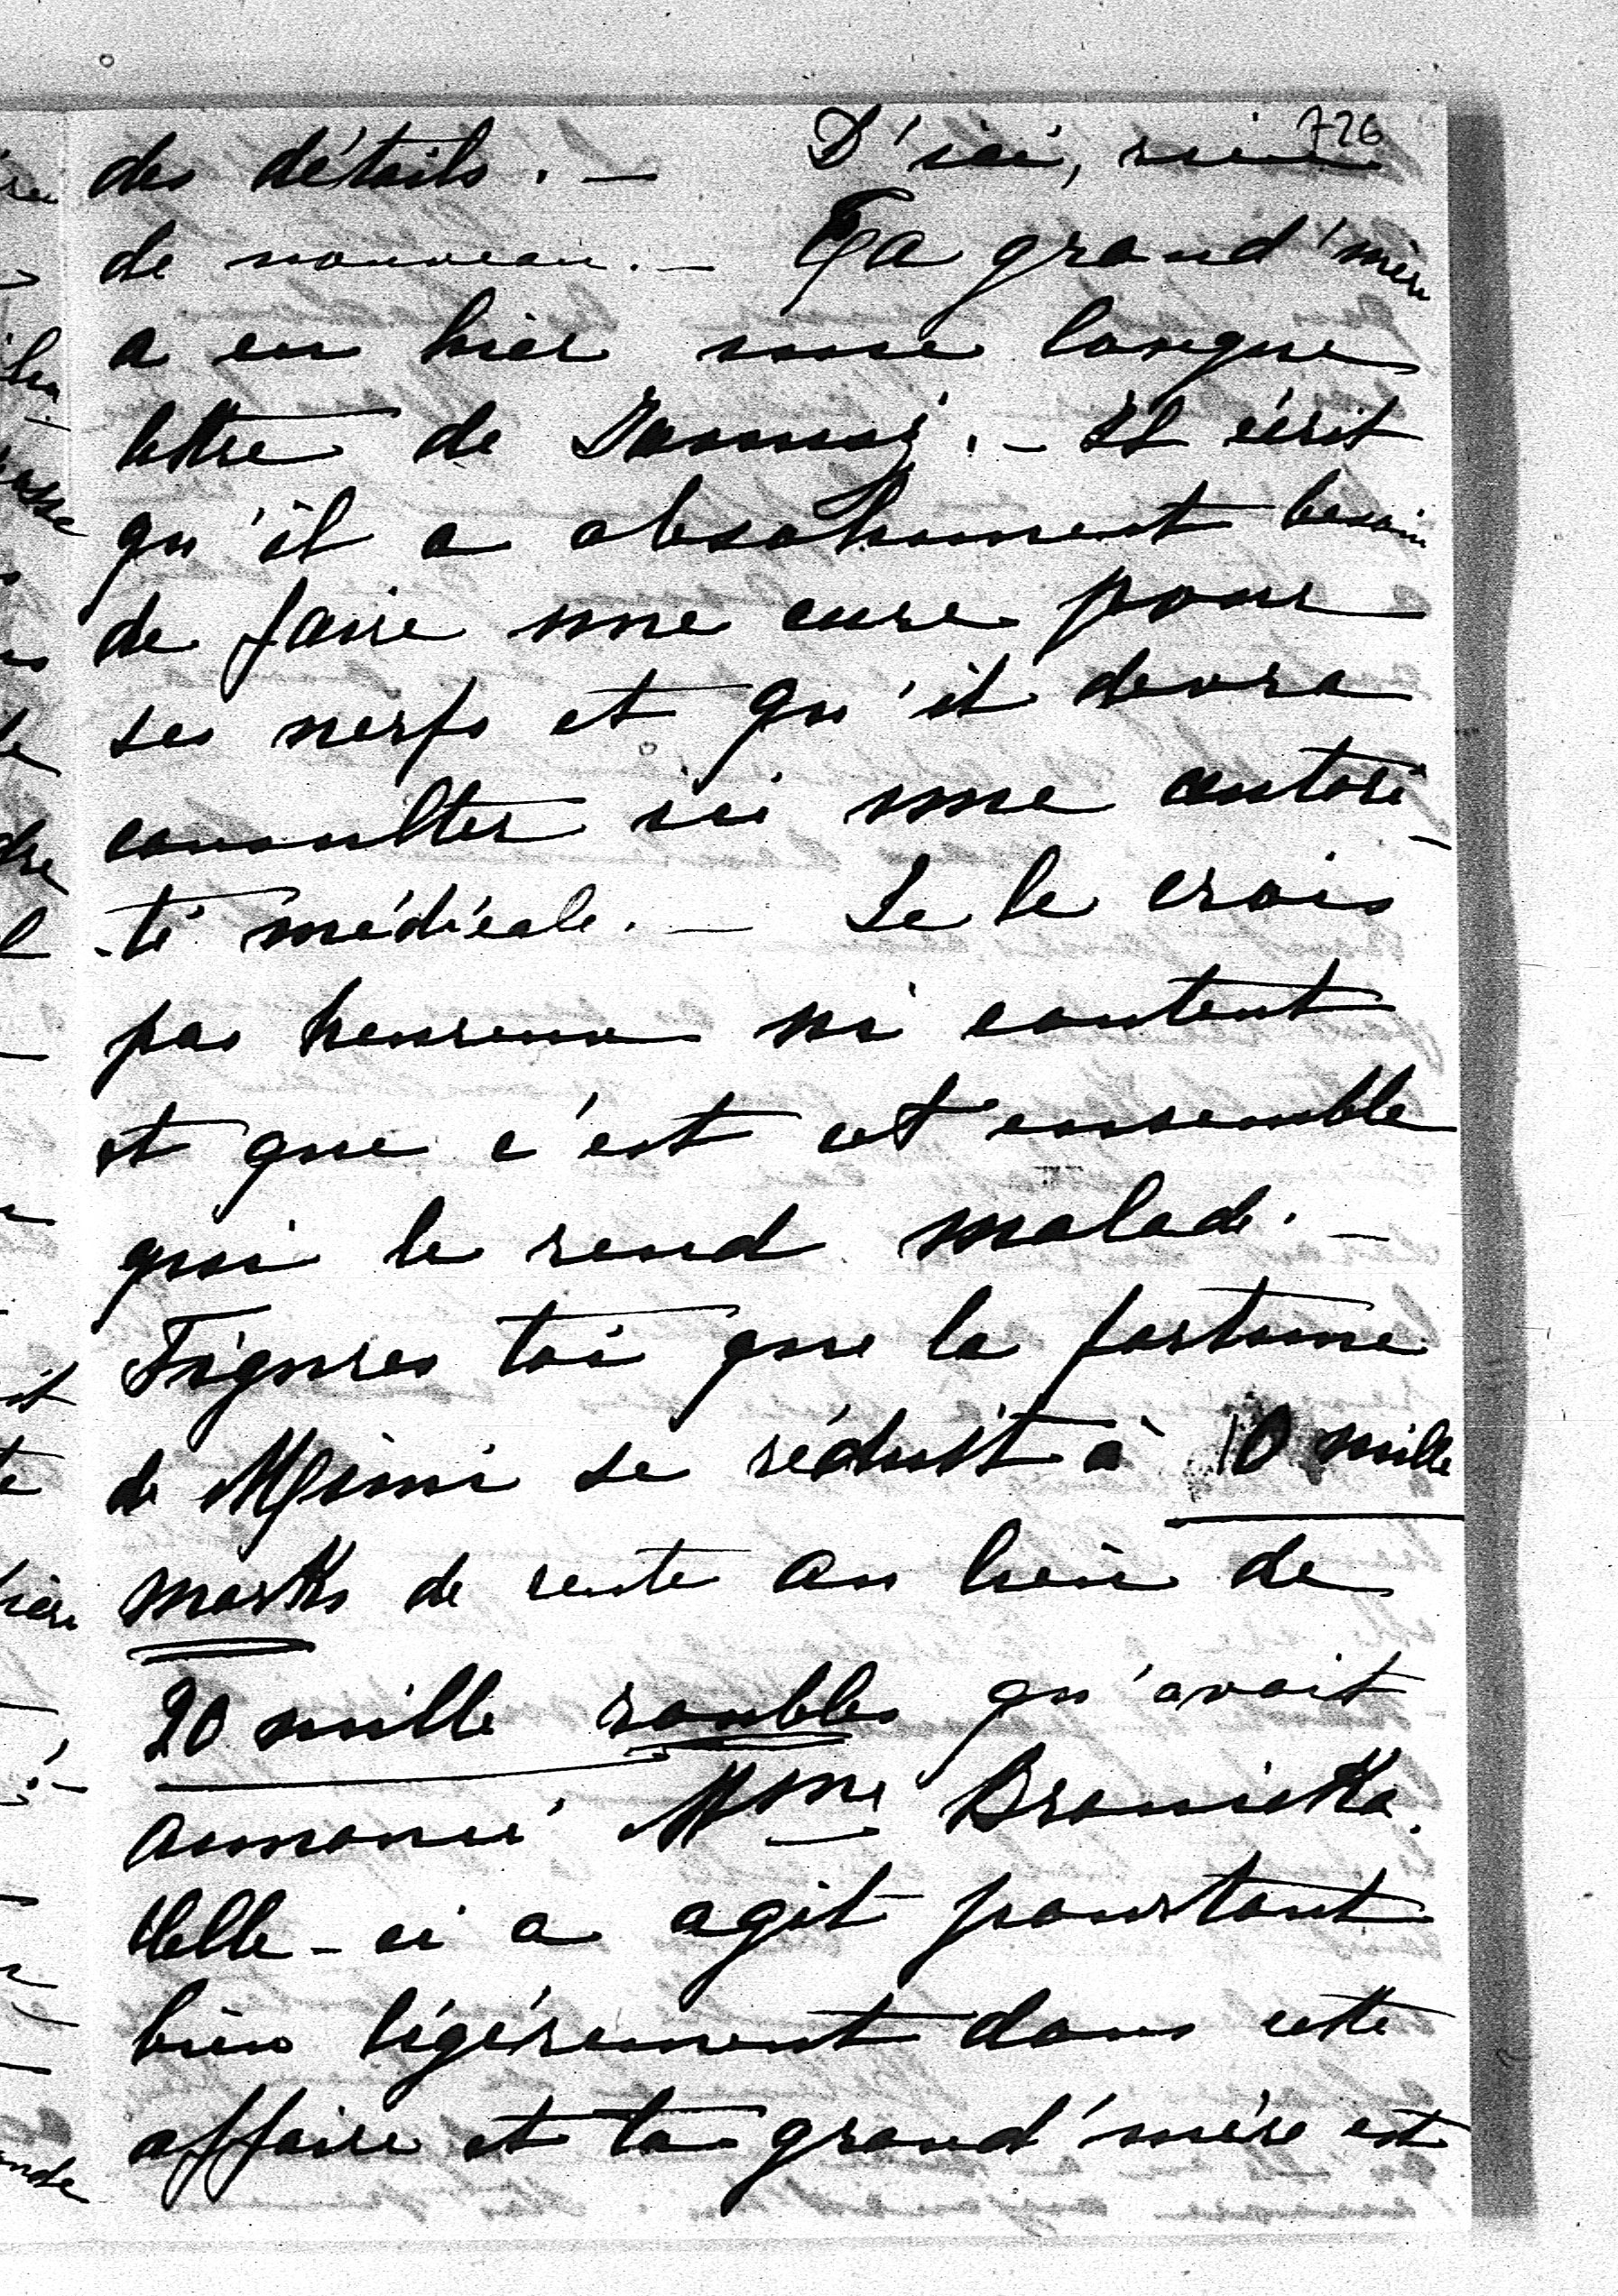 726
des détails. — D'ici, rien
de nouveau. — Ta grand'mère
a eu hier une longue
lettre de . — Il écrit
qu'il a absolument besoin
de faire une cure pour
ses nerfs et qu'il devra
consulter ici une autori-
-té médicale. — Je le crois
pas heureux ni content
et que c'est cet ensemble
qui le rend malade. —
Figures toi que la fortune
de Mimi se réduit à 10 mille
marks de rente au lieu de
20 mille roubles qu'avait
annoncé Mme Branicka.
Celle-ci a agit pourtant
bien légèrement dans cette
affaire et ta grand'mère est